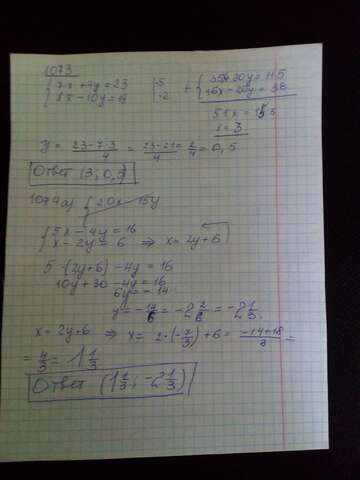 1073
{ 7x + 4y = 23 | · 5
{ 8x - 10y = 19 | · 2
+ { 35x + 20y = 115
{ 16x - 20y = 38
51x = 153
x = 3
y = 23 - 7·3 / 4 = 23 - 21 / 4 = 2/4 = 0,5
Ответ (3; 0,5)
1074 a) { 20x - 15y
{ 5x - 4y = 16
{ x - 2y = 6 ⇒ x = 2y + 6
5 · (2y + 6) - 4y = 16
10y + 30 - 4y = 16
6y = -14
y = -14/6 = -2 2/6 = -2 1/3
x = 2y + 6 ⇒ x = 2 · (-7/3) + 6 = -14 + 18 / 3 =
= 4/3 = 1 1/3
Ответ (1 1/3; -2 1/3)